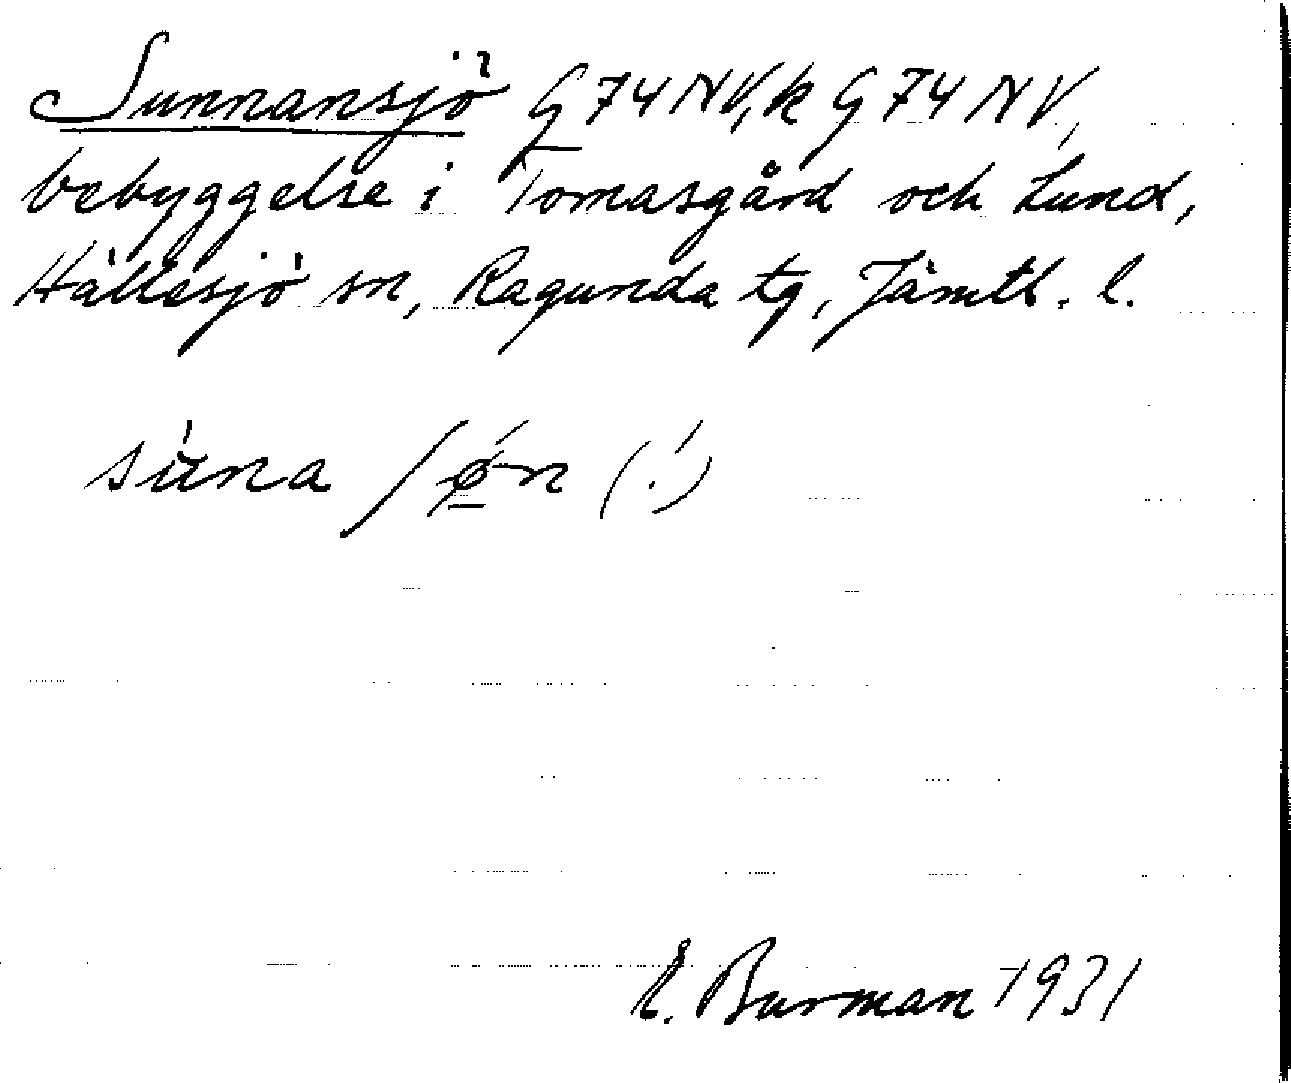 Sunnansjö G 74 NV, k G 74 NV,
bebyggelse i Tomasgård och Lund,
Hällesjö sn, Ragunda tg, Jämtl. l.
sùna ʃǿn (!)
E. Burman 1931